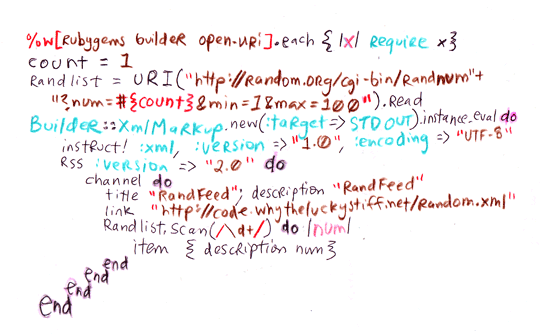 %w[rubygems builder open-uri].each { |x| require x }
count = 1
randlist = URI("http://random.org/cgi-bin/randnum"+
"?num=#{count}&min=1&max=100").read
Builder::XmlMarkup.new(:target => STDOUT).instance_eval do
instruct! :xml, :version => "1.0", :encoding => "UTF-8"
rss :version => "2.0" do
channel do
title "RandFeed"; description "RandFeed"
link "http://code.whytheluckystiff.net/random.xml"
randlist.scan(/\d+/) do |num|
item { description num }
end
end
end
end